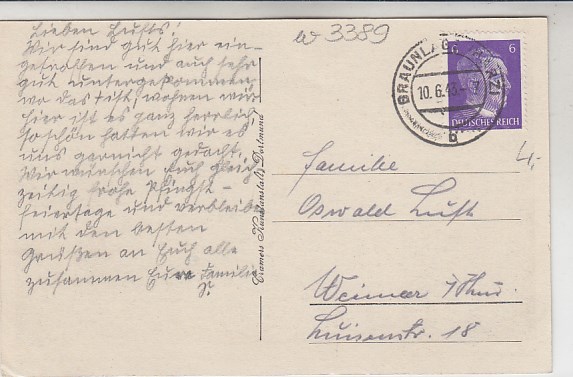 Lieben Lufts!
Wir sind gut hier ein-
getroffen und auch sehr
gut untergekommen,
wo das ist, wohnen wir
hier ist es ganz herrlich
so schön hatten wir es
uns garnicht gedacht.
Wir wünschen Euch gleich
zeitig frohe Pfingst-
feiertage und verbleiben
mit den besten
Grüßen an Euch alle
zusammen Eure Familie
S.
w 3389
BRAUNLAGE (HARZ)
10.6.43
b
6
DEUTSCHES REICH
4,-
Familie
Oswald Luft
Weimar / Thür.
Luisenstr. 18
Cramers Kunstanstalt, Dortmund